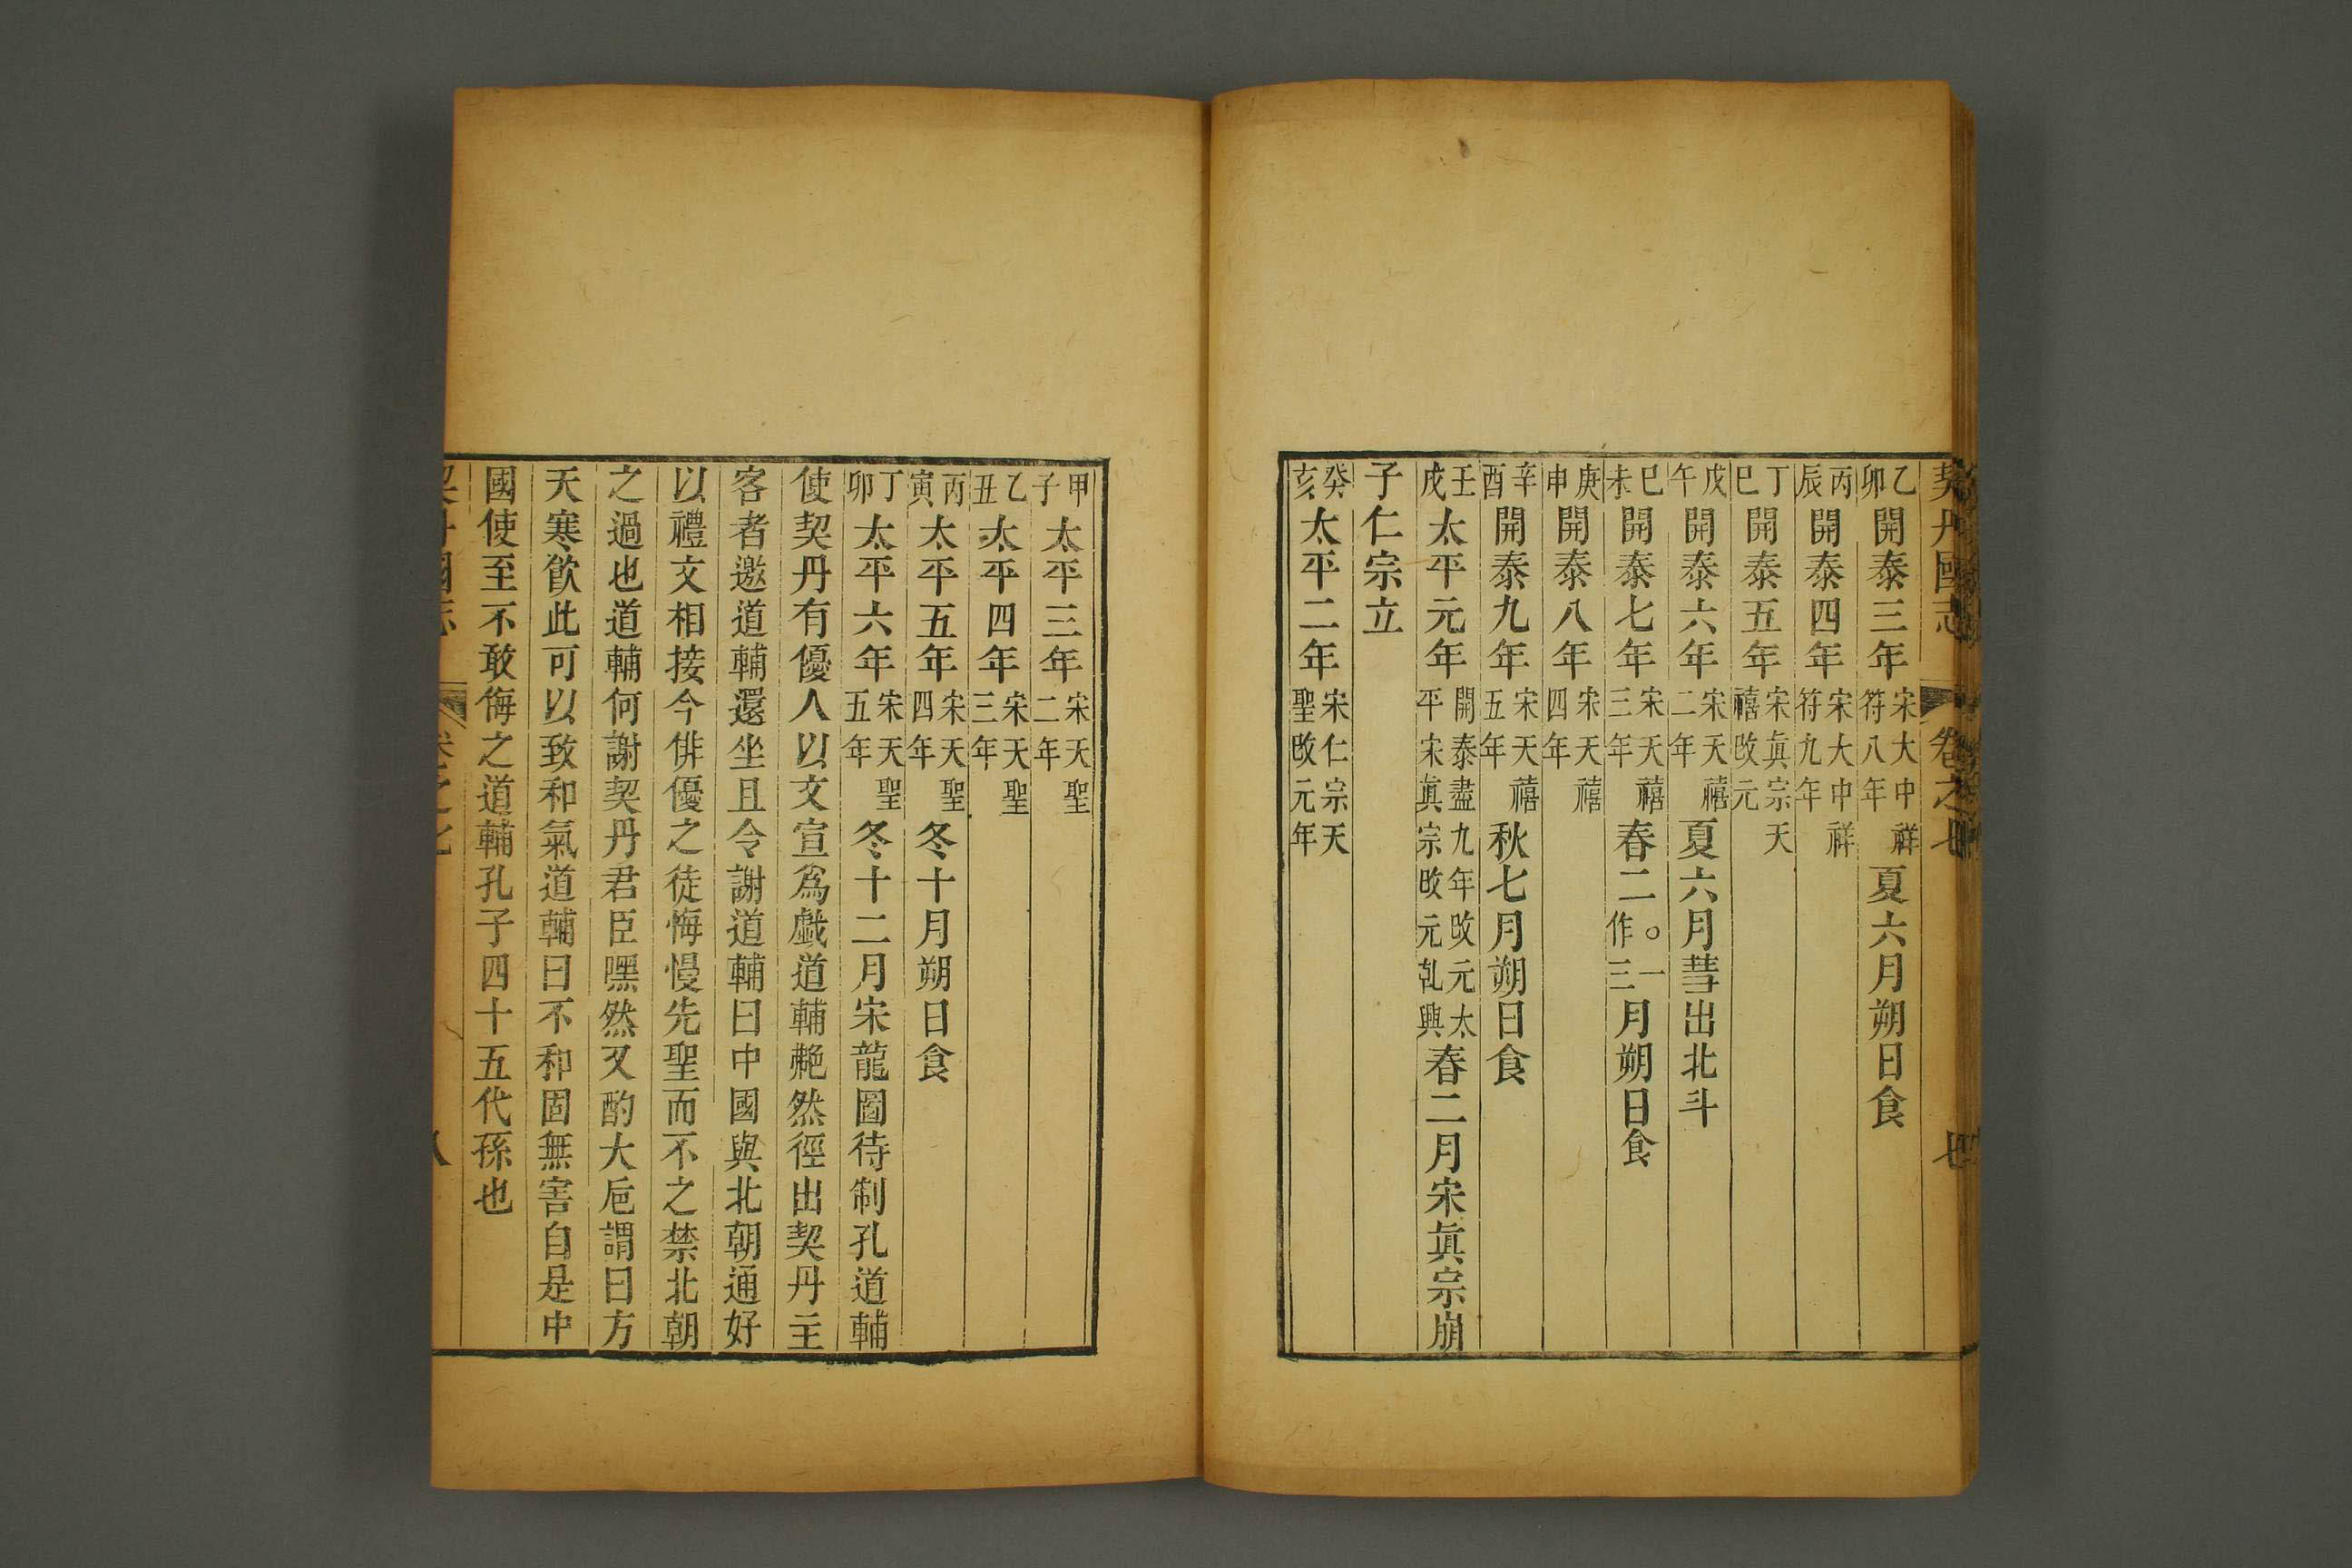 契丹國志 卷之七 七
乙卯開泰三年宋大中祥符八年夏六月朔日食
丙辰開泰四年宋大中祥符九年
丁巳開泰五年宋眞宗天禧攺元
戊午開泰六年宋天禧二年夏六月彗出北斗
巳未開泰七年宋天禧三年春二。一作三月朔日食
庚申開泰八年宋天禧四年
辛酉開泰九年宋天禧五年秋七月朔日食
壬戌太平元年開泰盡九年攺元太平宋眞宗攺元乹興春二月宋眞宗崩
子仁宗立
癸亥太平二年宋仁宗天聖攺元年
甲子太平三年宋天聖二年
乙丑太平四年宋天聖三年
丙寅太平五年宋天聖四年冬十月朔日食
丁卯太平六年宋天聖五年冬十二月宋龍圖待制孔道輔
使契丹有優人以文宣爲戱道輔艴然徑出契丹主
客者邀道輔還坐且令謝道輔曰中國與北朝通好
以禮文相接今俳優之徒悔慢先聖而不之禁北朝
之過也道輔何謝契丹君臣嘿然又酌大巵謂曰方
天寒飮此可以致和氣道輔曰不和固無害自是中
國使至不敢侮之道輔孔子四十五代孫也
契丹國志 卷之七 八